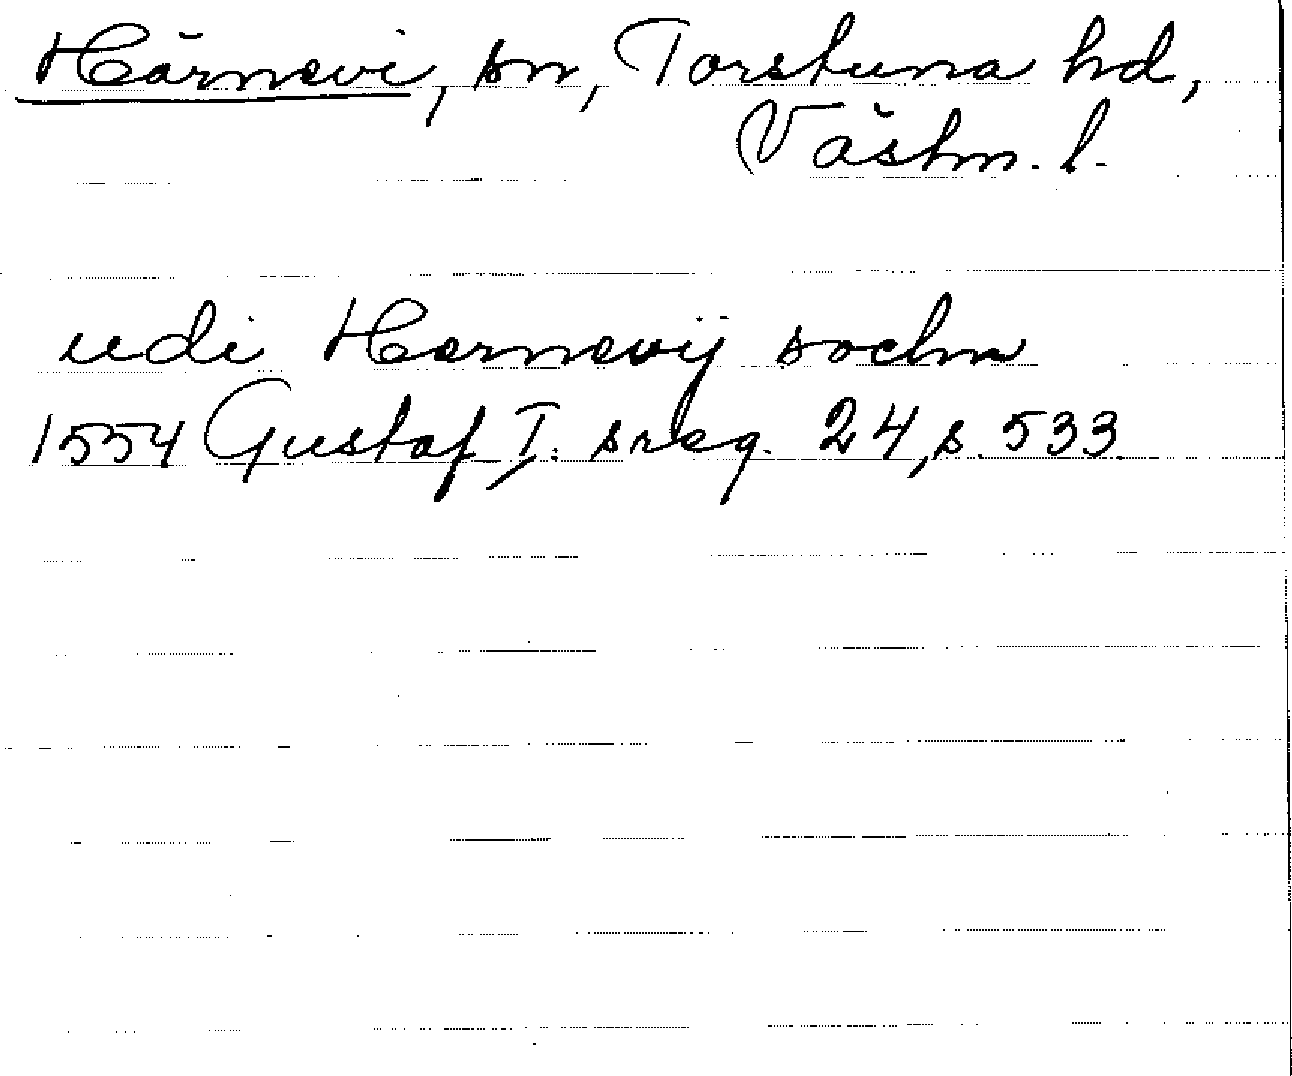 Härnevi, sn, Torstuna hd,
Västm. l.
udi Hernevij sochn
1554 Gustaf I: sreg. 24, s. 533.